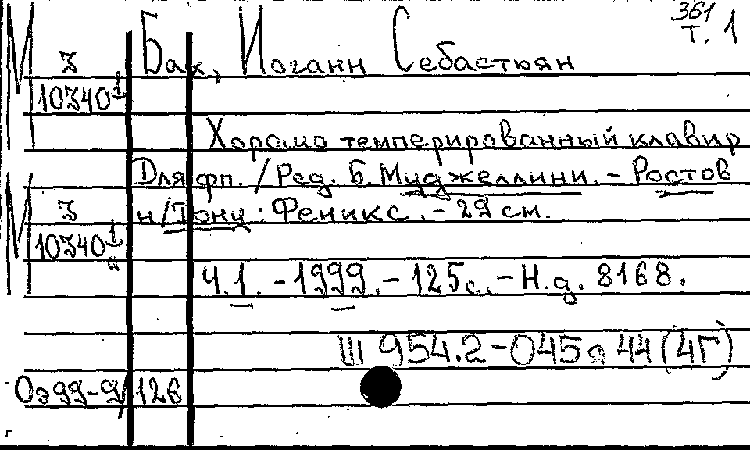 361
т. 1
М З Бах, Иоганн Себастьян
10340 1
Хорошо темперированный клавир
Для фп. / Ред. Б. Муджеллини. – Ростов
М З н/Дону : Феникс. – 29 см.
10340 1
Ч.1. – 1999. – 125 с. – Н.д. 8168.
Ш 954.2-045 я 44 (4Г)
Оэ 99-9/126